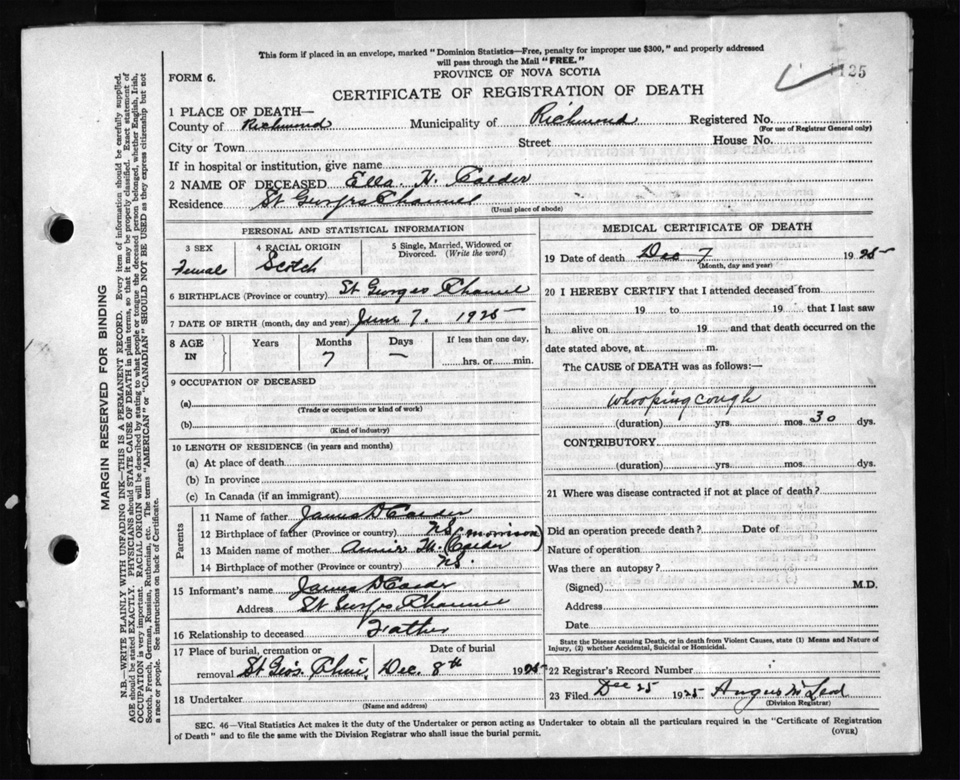 This form if placed in an envelope, marked "Dominion Statistics—Free, penalty for improper use $300," and properly addressed
will pass through the Mail "FREE."
PROVINCE OF NOVA SCOTIA
FORM 6.
1125
CERTIFICATE OF REGISTRATION OF DEATH
1 PLACE OF DEATH—
County of Richmond Municipality of Richmond Registered No.
(For use of Registrar General only)
City or Town Street House No.
If in hospital or institution, give name
2 NAME OF DECEASED Ella H. Calder
Residence St Georges Channel
(Usual place of abode)
PERSONAL AND STATISTICAL INFORMATION
3 SEX 4 RACIAL ORIGIN 5 Single, Married, Widowed or
Divorced. (Write the word)
Female Scotch
6 BIRTHPLACE (Province or country) St Georges Channel
7 DATE OF BIRTH (month, day and year) June 7. 1925
8 AGE Years Months Days If less than one day,
IN 7 — hrs. or min.
9 OCCUPATION OF DECEASED
(a)
(Trade or occupation or kind of work)
(b)
(Kind of industry)
10 LENGTH OF RESIDENCE (in years and months)
(a) At place of death
(b) In province
(c) In Canada (if an immigrant)
Parents
11 Name of father James D Calder
12 Birthplace of father (Province or country) NS
(Morrison)
13 Maiden name of mother Annie Calder
14 Birthplace of mother (Province or country) NS.
15 Informant's name James D Calder
Address St Georges Channel
16 Relationship to deceased Father
17 Place of burial, cremation or Date of burial
removal St Geo's Chan, Dec. 8th 1925
18 Undertaker
(Name and address)
MEDICAL CERTIFICATE OF DEATH
19 Date of death Dec 7 1925
(Month, day and year)
20 I HEREBY CERTIFY that I attended deceased from
19 to 19 that I last saw
h alive on 19 and that death occurred on the
date stated above, at m.
The CAUSE of DEATH was as follows:—
whooping cough
(duration) yrs. mos. 30 dys.
CONTRIBUTORY
(duration) yrs. mos. dys.
21 Where was disease contracted if not at place of death?
Did an operation precede death? Date of
Nature of operation
Was there an autopsy?
(Signed) M.D.
Address
Date
State the Disease causing Death, or in death from Violent Causes, state (1) Means and Nature of
Injury, (2) whether Accidental, Suicidal or Homicidal.
22 Registrar's Record Number
23 Filed Dec 25 1925 Angus McLeod
(Division Registrar)
SEC. 46—Vital Statistics Act makes it the duty of the Undertaker or person acting as Undertaker to obtain all the particulars required in the "Certificate of Registration
of Death" and to file the same with the Division Registrar who shall issue the burial permit.
(OVER)
MARGIN RESERVED FOR BINDING
N.B.—WRITE PLAINLY WITH UNFADING INK—THIS IS A PERMANENT RECORD. Every item of information should be carefully supplied.
AGE should be stated EXACTLY. PHYSICIANS should STATE CAUSE OF DEATH in plain terms, so that it may be properly classified. Exact statement of
OCCUPATION is very important. RACIAL ORIGIN will be described by stating to what people or tongue the deceased person belonged, whether English, Irish,
Scotch, French, German, Russian, Ruthenian, etc. The terms "AMERICAN" or "CANADIAN" SHOULD NOT BE USED as they express citizenship but not
a race or people. See instructions on back of Certificate.